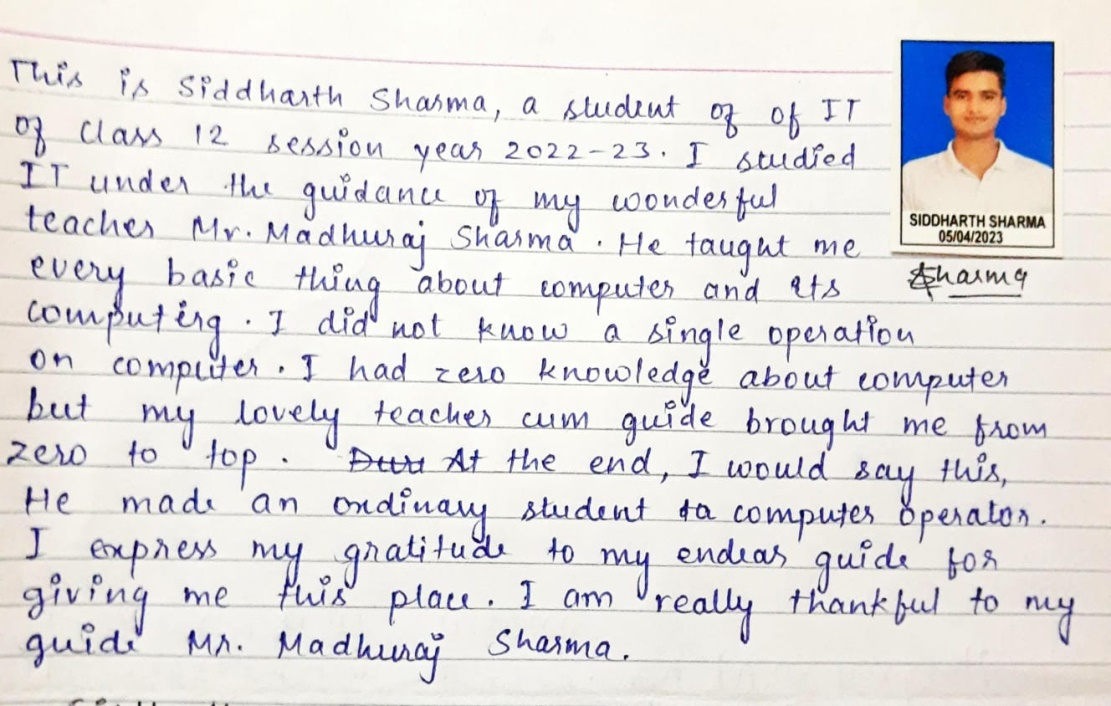 This is Siddharth Sharma, a student of of IT
of class 12 session year 2022-23. I studied
IT under the guidance of my wonderful
teacher Mr. Madhuraj Sharma. He taught me
every basic thing about computer and its
computing. I did not know a single operation
on computer. I had zero knowledge about computer
but my lovely teacher cum guide brought me from
zero to top. At the end, I would say this,
He made an ordinary student to a computer operator.
I express my gratitude to my endear guide for
giving me this place. I am really thankful to my
guide Mr. Madhuraj Sharma.
SIDDHARTH SHARMA
05/04/2023
Sharma